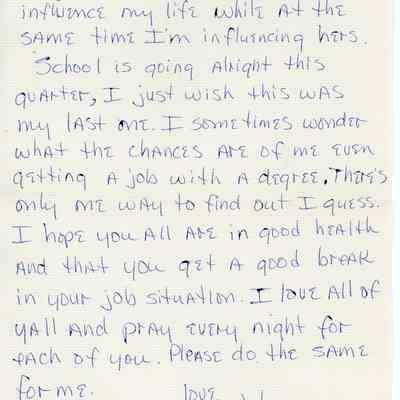 influence my life while at the
same time I'm influencing hers.
School is going alright this
quarter, I just wish this was
my last one. I sometimes wonder
what the chances are of me even
getting a job with a degree. There's
only one way to find out I guess.
I hope you all are in good health
and that you get a good break
in your job situation. I love all of
yall and pray every night for
each of you. Please do the same
for me.
love